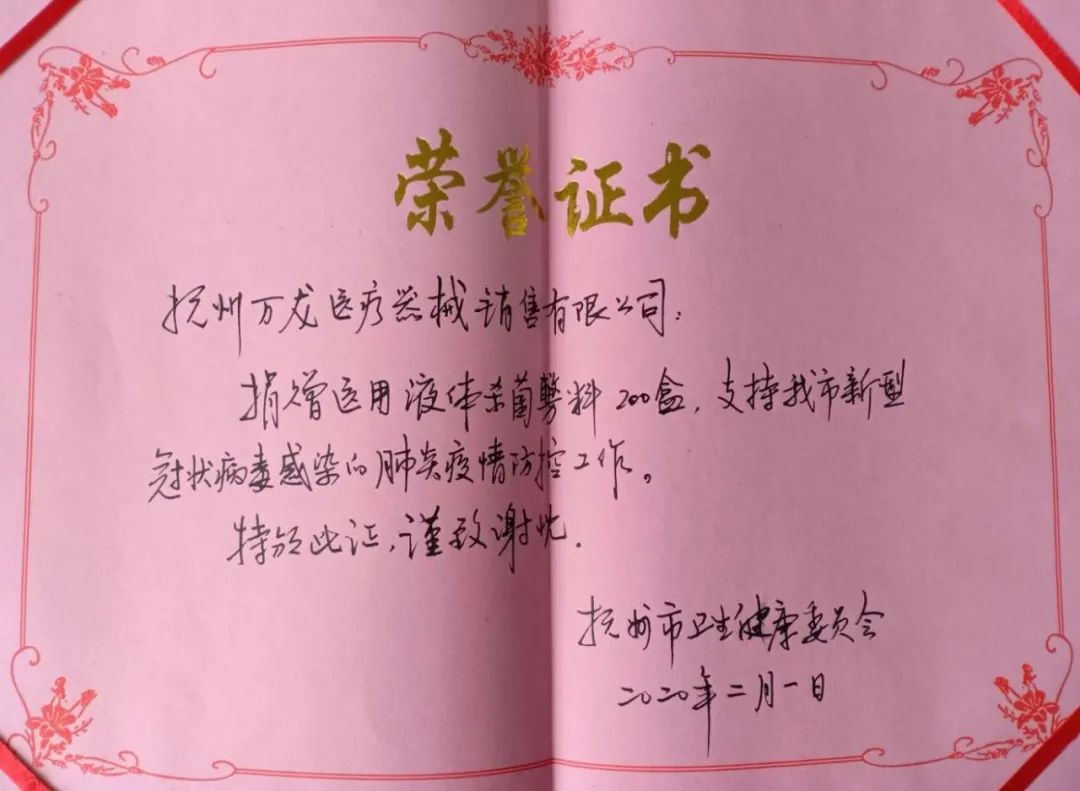 荣誉证书
抚州万龙医疗器械销售有限公司：
捐赠医用液体杀菌敷料200盒，支持我市新型
冠状病毒感染的肺炎疫情防控工作。
特颁此证，谨致谢忱．
抚州市卫生健康委员会
二〇二〇年二月一日